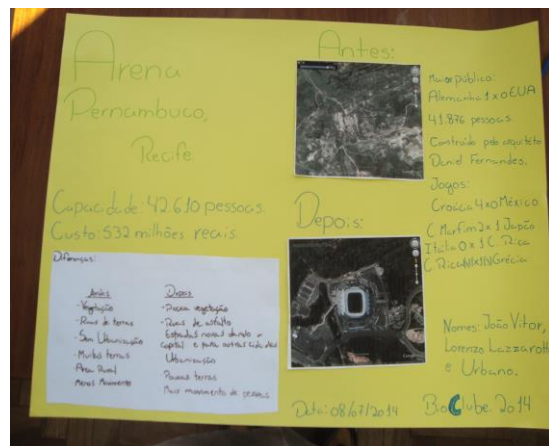 Arena
Pernambuco,
Recife
Capacidade: 42.610 pessoas.
Custo: 532 milhões reais.
Diferenças:
Antes
- Vegetação
- Ruas de terras
- Sem Urbanização
- Muitas terras
Área Rural
Menos Movimento
Depois
- Pouca vegetação
- Ruas de asfalto
Estradas novas dando a
capital e para outras cidades
Urbanização
Poucas terras
Mais movimento de pessoas
Antes:
Depois:
Maior público:
Alemanha 1x0 EUA
41.876 pessoas
Construído pelo arquiteto
Daniel Fernandes.
Jogos:
Croácia 4x0 México
C. Marfim 2x1 Japão
Itália 0x1 C. Rica
C. Rica 1x1 Grécia
Nomes: João Vitor,
Lorenzo Lazzarotto
e Urbano.
Data: 08/07/2014
BioClube 2014